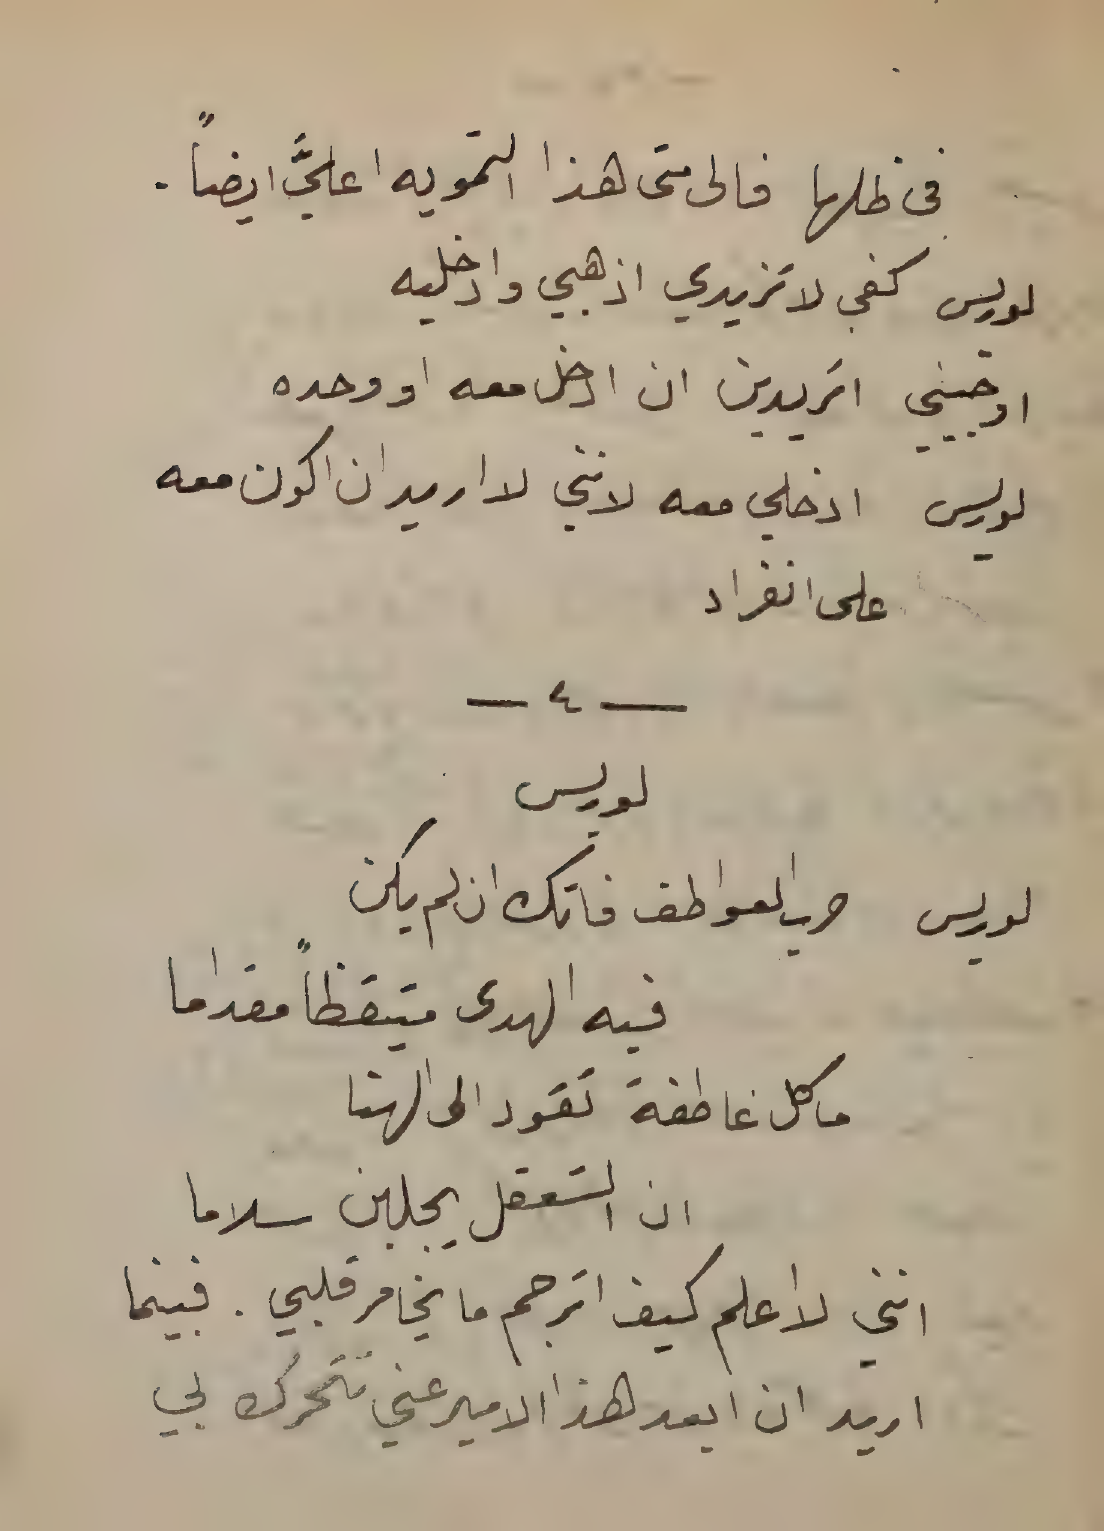 في ظلها فالى متى هذا التمويه اعليَّ ايضاً.
لوريس كفى لا تزيدي اذهبي وادخليه
اوجيني اتريدين ان ادخل معه او وحده
لوريس ادخلي معه لانني لا اريد ان اكون معه
على انفراد
— ٤ —
لوريس
لوريس حرب العواطف فاتك ان لم يكن
فيه الهدى متيقظاً مقداما
ما كل عاطفة تقود الى الهنا
ان التعقل يجلبن سلاما
انني لا اعلم كيف اترجم ما يخامر قلبي. فبينما
اريد ان ابعد هذا الامير عني تتحرك بي